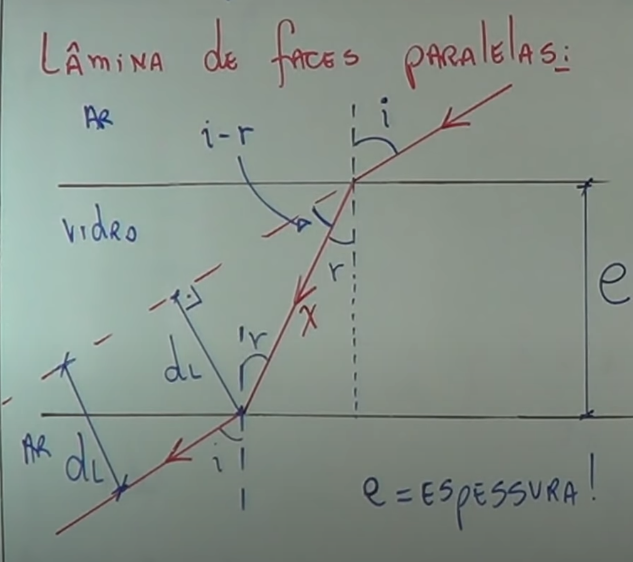 LÂMINA dE fACES PARALELAS:
AR
i
i-r
VIdRO
r
e
x
r
dL
AR
dL
i
e = ESPESSURA!